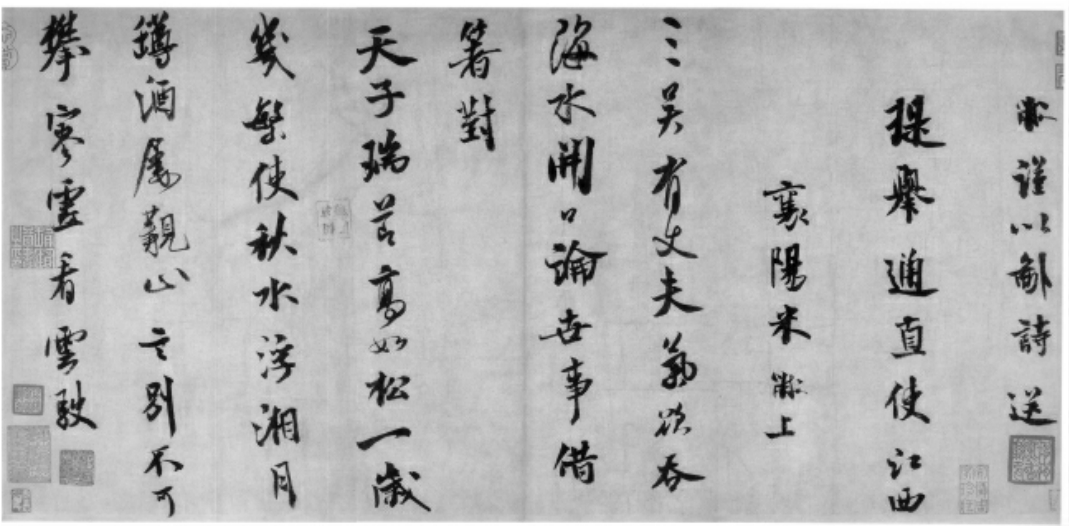 黻謹以鄙詩送
提舉通直使江西
襄陽米黻上
三吳有丈夫氣欲吞
海水開口論世事借
箸對
天子瑞節高如松一歲
幾繫使秋水浮湘月
鐏酒屢言別不可
攀寥看雲駛